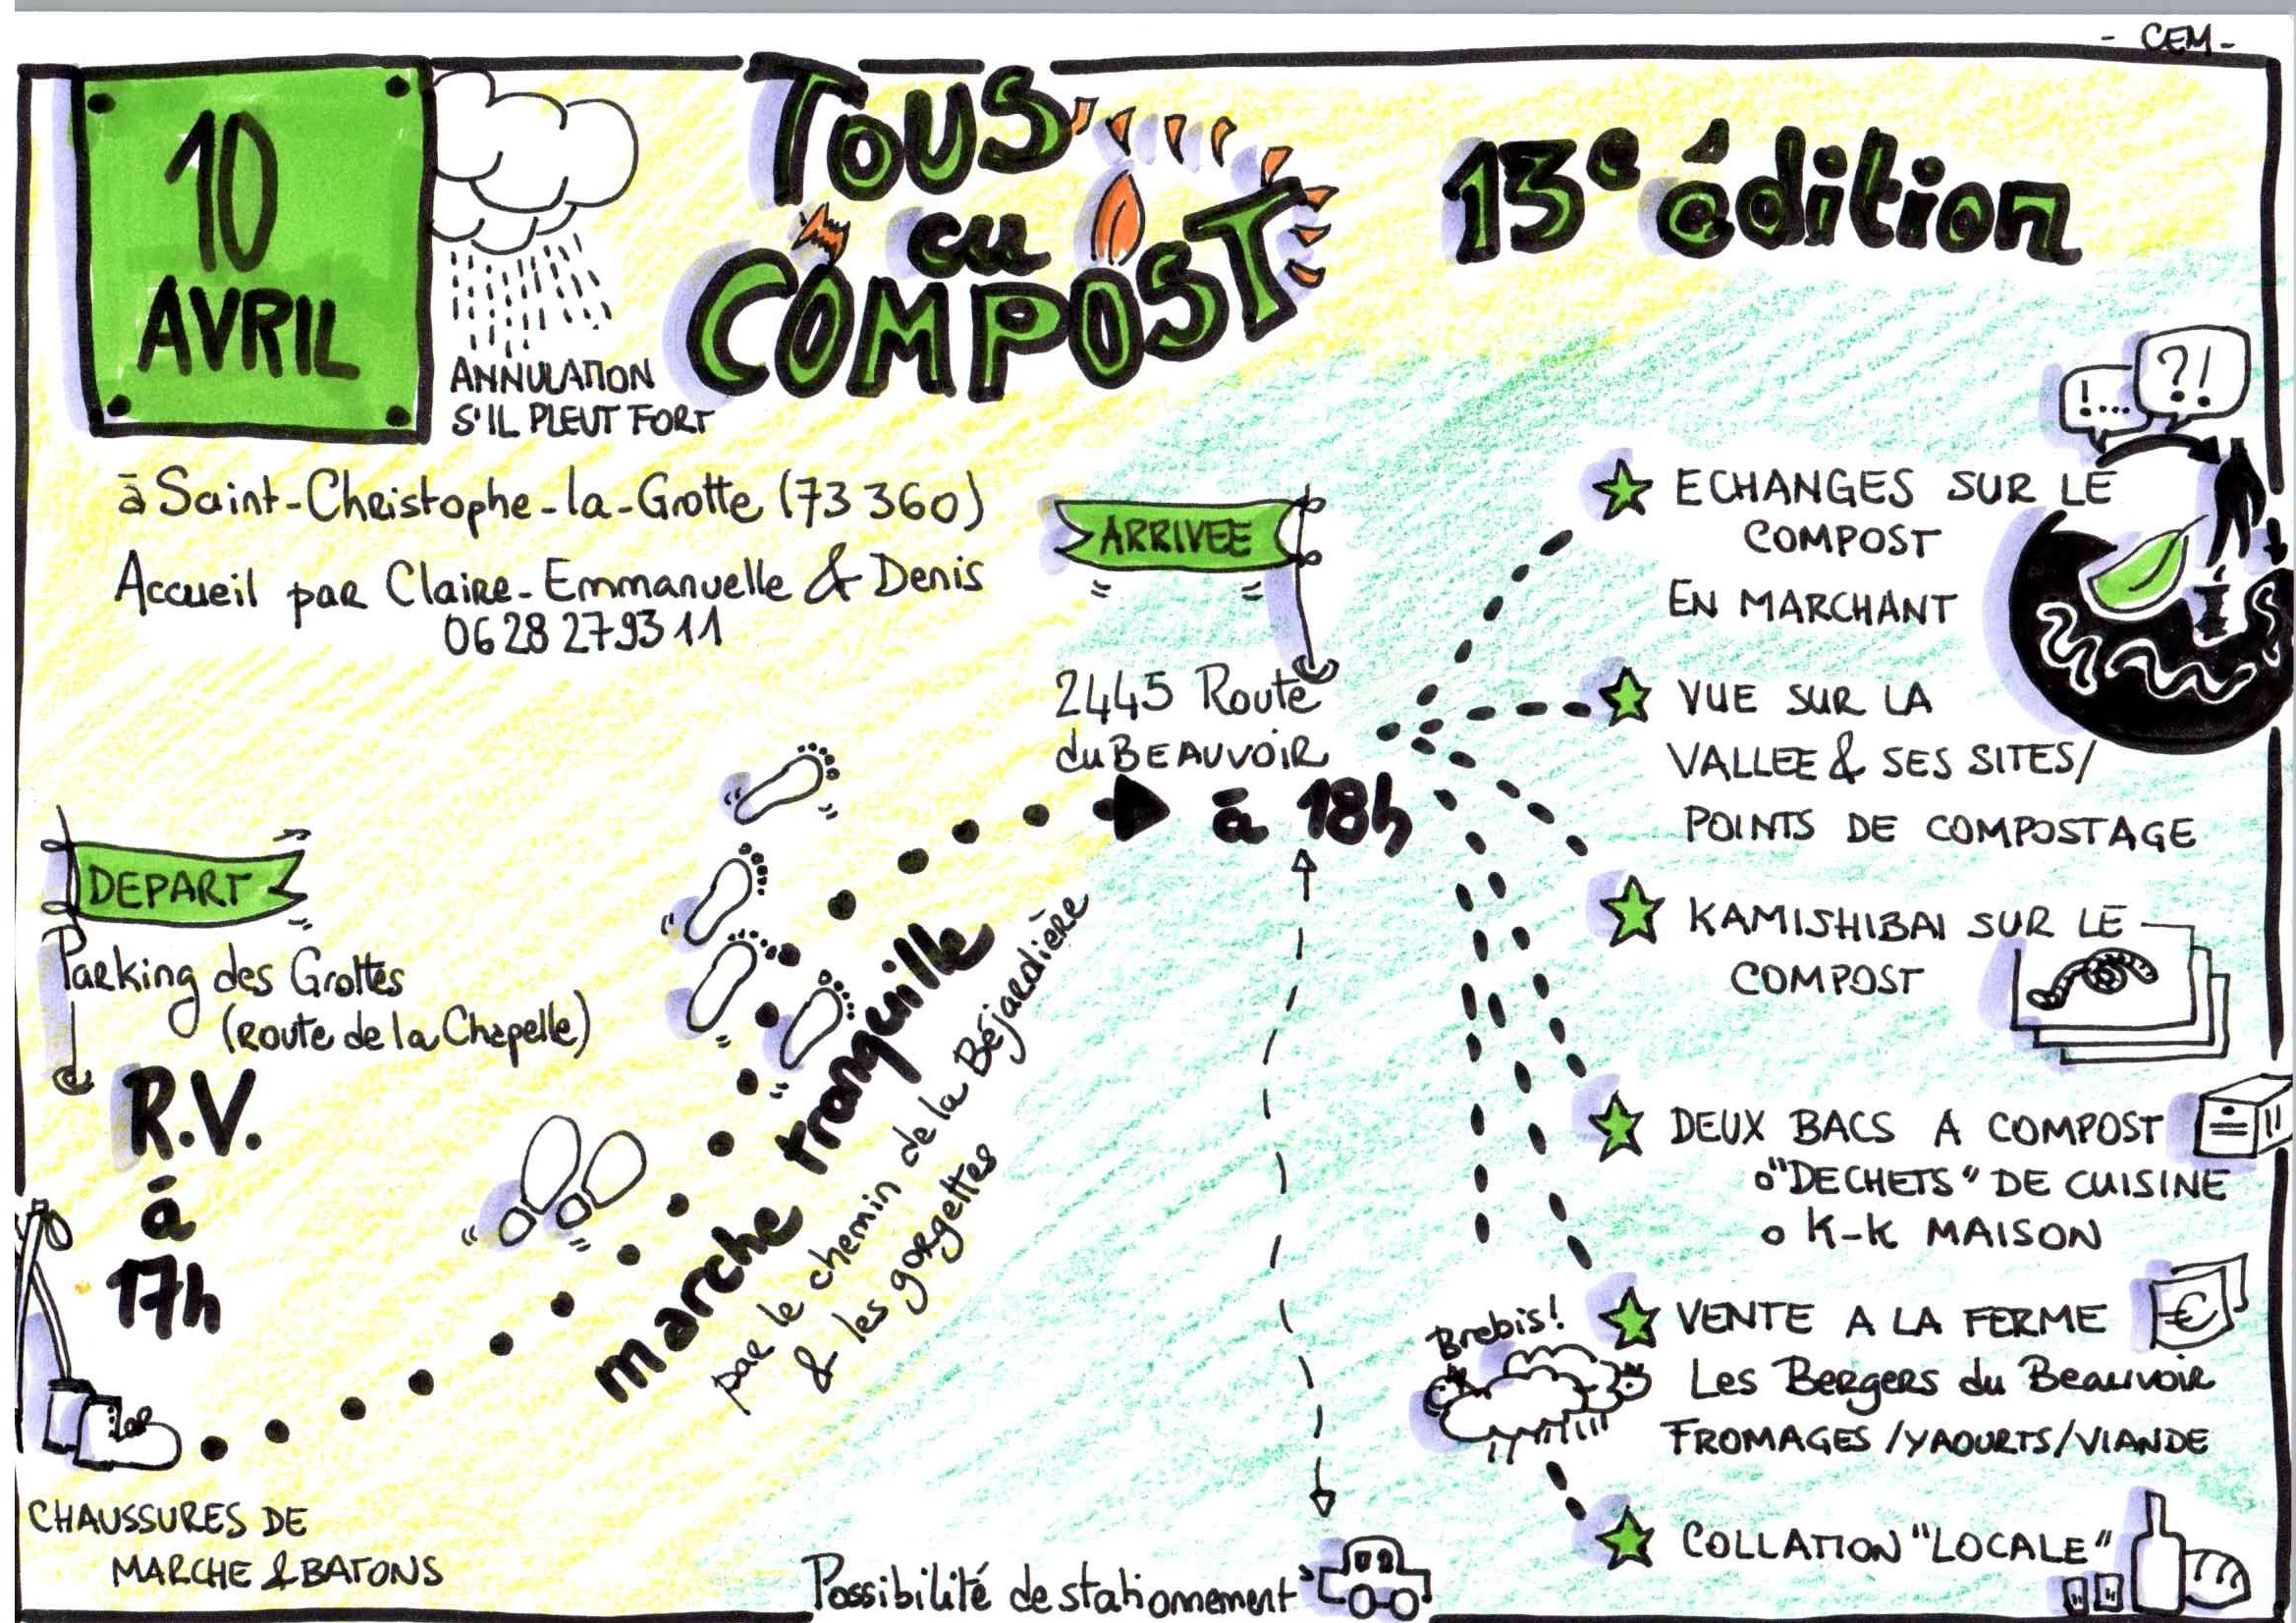 - CEM -
10
AVRIL
ANNULATION
S'IL PLEUT FORT
TOUS
au
COMPOST
13e édition
à Saint-Christophe-la-Grotte (73 360)
Accueil par Claire-Emmanuelle & Denis
06 28 27 93 11
DEPART
Parking des Grottes
(Route de la Chapelle)
R.V.
à
17h
CHAUSSURES DE
MARCHE & BATONS
marche tranquille
par le chemin de la Béjardière
& les gorgettes
ARRIVEE
2445 Route
du BEAUVOIR
à 18h
Possibilité de stationnement
!...
?!
ECHANGES SUR LE
COMPOST
EN MARCHANT
VUE SUR LA
VALLEE & SES SITES/
POINTS DE COMPOSTAGE
KAMISHIBAI SUR LE
COMPOST
DEUX BACS A COMPOST
o "DECHETS" DE CUISINE
o K-K MAISON
Brebis!
VENTE A LA FERME
€
Les Bergers du Beauvoir
FROMAGES /YAOURTS/VIANDE
COLLATION "LOCALE"